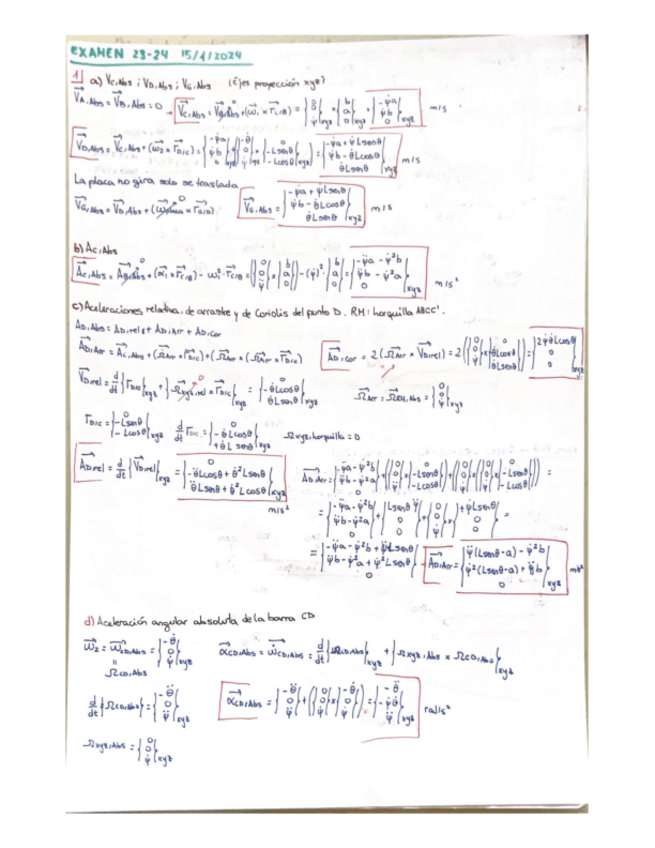 EXAMEN 23-24 15/1/2024
1 a) V_C,Abs ; V_D,Abs ; V_G,Abs (Ejes proyección xyz)
V_A,Abs = V_B,Abs = 0 → V_C,Abs = V_B,Abs + (ω₁ × r_C/B) = {0 0 ψ̇}xyz × {b a 0}xyz = {-ψ̇a ψ̇b 0}xyz m/s
V_D,Abs = V_C,Abs + (ω₂ × r_D/C) = {-ψ̇a ψ̇b 0}xyz + {-θ̇ 0 ψ̇} × {0 -Lsenθ -Lcosθ}xyz = {-ψ̇a + ψ̇Lsenθ ψ̇b - θ̇Lcosθ θ̇Lsenθ}xyz m/s
La placa no gira solo se traslada
V_G,Abs = V_D,Abs + (ω_placa × r_G/D) V_G,Abs = {-ψ̇a + ψ̇Lsenθ ψ̇b - θ̇Lcosθ θ̇Lsenθ}xyz m/s
b) A_C,Abs
A_C,Abs = A_B,Abs + (α₁ × r_C/B) - ω₁² · r_C/B = {0 0 ψ̈} × {b a 0} - (ψ̇)² · {b a 0} = {-ψ̈a - ψ̇²b ψ̈b - ψ̇²a 0}xyz m/s²
c) Aceleraciones relativa, de arrastre y de Coriolis del punto D. RM: horquilla ABCC'.
A_D,Abs = A_D,rel + A_D,Arr + A_D,cor
A_D,Arr = A_C,Abs + (Ω̇_Arr × r_D/C) + (Ω_Arr × (Ω_Arr × r_D/C)) A_D,cor = 2(Ω_Arr × V_D,rel) = 2({0 0 ψ̇} × {0 -θ̇Lcosθ θ̇Lsenθ}) = {2ψ̇θ̇Lcosθ 0 0}xyz
V_D,rel = d/dt {r_D/C}xyz + {Ω_xyz,rel × r_D/C}xyz = {0 -θ̇Lcosθ θ̇Lsenθ}xyz Ω_Arr = Ω_RM,Abs = {0 0 ψ̇}xyz
r_D/C = {0 -Lsenθ -Lcosθ}xyz d/dt r_D/C = {0 -θ̇Lcosθ +θ̇Lsenθ}xyz Ω xyz,horquilla = 0
A_D,rel = d/dt {V_D,rel}xyz = {0 -θ̈Lcosθ + θ̇²Lsenθ θ̈Lsenθ + θ̇²Lcosθ}xyz m/s²
A_D,Arr = {-ψ̈a - ψ̇²b ψ̈b - ψ̇²a 0} + ({0 0 ψ̈} × {0 -Lsenθ -Lcosθ}) + ({0 0 ψ̇} × ({0 0 ψ̇} × {0 -Lsenθ -Lcosθ})) =
= {-ψ̈a - ψ̇²b ψ̈b - ψ̇²a 0} + {Lsenθ ψ̈ 0 0} + {0 0 ψ̇} × {+ψ̇Lsenθ 0 0} =
= {-ψ̈a - ψ̇²b + ψ̈Lsenθ ψ̈b - ψ̇²a + ψ̇²Lsenθ 0} → A_D,Arr = {ψ̈(Lsenθ-a) - ψ̇²b ψ̇²(Lsenθ-a) + ψ̈b 0}xyz m/s²
d) Aceleración angular absoluta de la barra CD
ω₂ = ω_CD,Abs = {-θ̇ 0 ψ̇}xyz α_CD,Abs = ω̇_CD,Abs = d/dt {Ω_CD,Abs}xyz + {Ω_xyz,Abs × Ω_CD,Abs}xyz
Ω_CD,Abs
d/dt {Ω_CD,Abs} = {-θ̈ 0 ψ̈}xyz α_CD,Abs = {-θ̈ 0 ψ̈} + ({0 0 ψ̇} × {-θ̇ 0 ψ̇}) = {-θ̈ -ψ̇θ̇ ψ̈}xyz rad/s²
Ω_xyz,Abs = {0 0 ψ̇}xyz